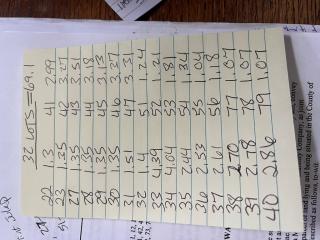 32 LOTS = 69.1
22 1.3 41 2.99
23 1.25 42 3.27
27 1.35 43 3.51
28 1.35 44 3.18
29 1.35 45 3.13
30 1.35 46 3.27
31 1.51 47
32 1.4 51 1.24
33 4.39 52 1.21
34 4.04 53 1.8
35 2.44 54 1.34
36 2.53 55 1.04
37 2.61 56 1.18
38 2.70 77 1.07
39 2.78 78 1.07
40 2.86 79 1.07
Company, as joint
land lying and being situated in the County of
described as follows, to-wit: